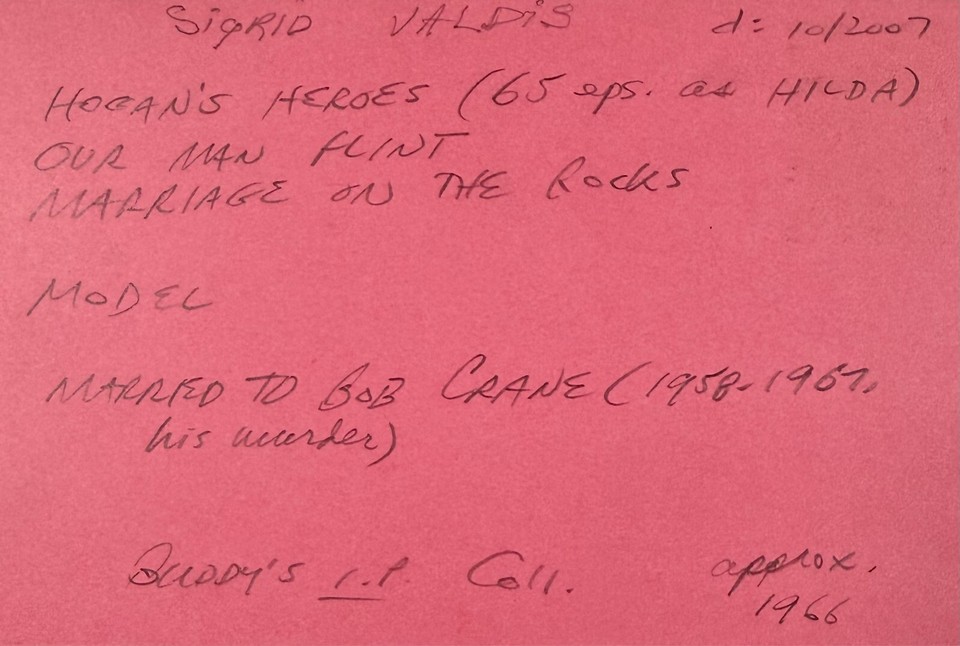 SIGRID VALDIS d: 10/2007
HOGAN'S HEROES (65 eps. as HILDA)
OUR MAN FLINT
MARRIAGE ON THE ROCKS
MODEL
MARRIED TO BOB CRANE (1958-1967,
his murder)
BUDDY'S I.P. Coll. approx.
1966